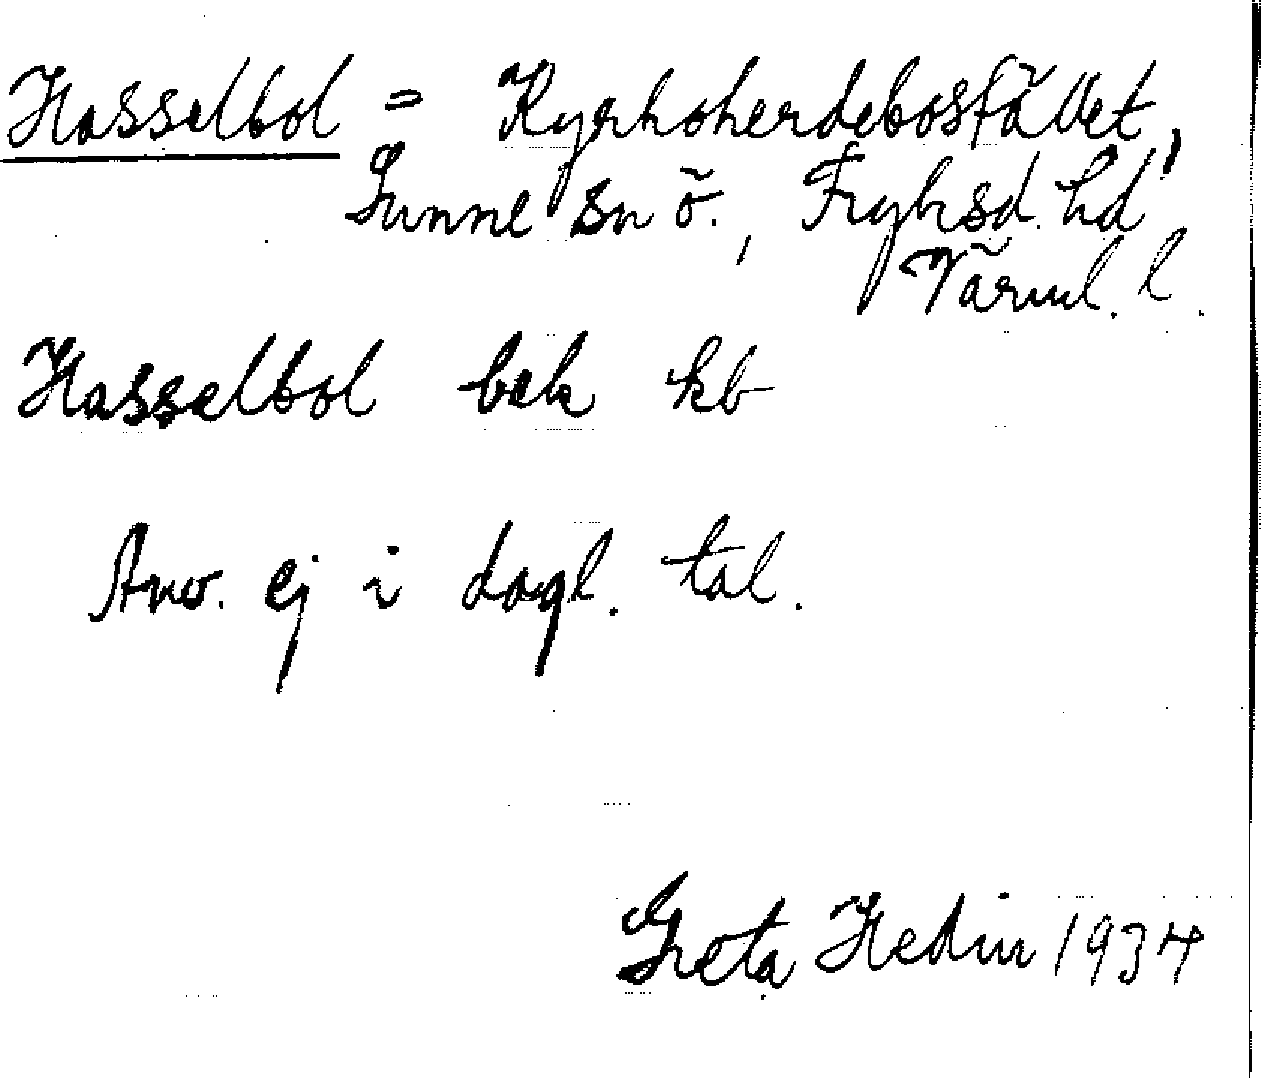 Hasselbol = Kyrkoherdebosfället,
Sunne sn ö., Fryksd. hd
Värml. l.
Hasselbol bek kb
Anv. ej i dagl. tal.
Greta Hedin 1934